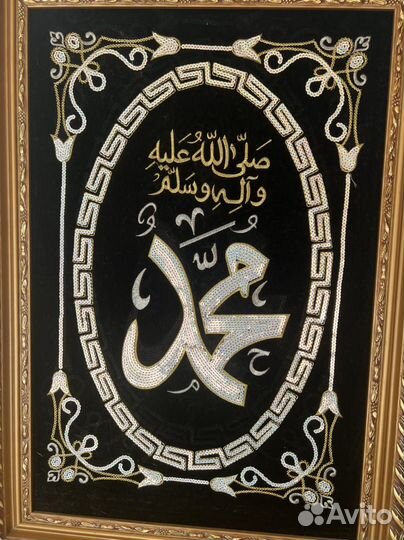 صَلَّى اللهُ عَلَيْهِ
وَآلِهِ وَسَلَّمَ
مُحَمَّد
Avito